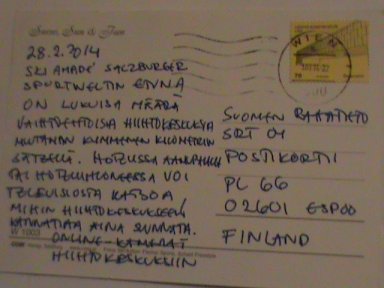 Snow, Sun & Fun
28.2.2014
SKI AMADÉ SALZBURGER
SPORTWELTIN ETUNA
ON LUKUISA MÄÄRÄ
VAIHTOEHTOISIA HIIHTOKESKUKSIA
MUUTAMAN KYMMENEN KILOMETRIN
SÄTEELLÄ. HOTELLISSA AAMIAISELLA
TAI HOTELLIHUONEESSA VOI
TELEVISIOSTA KATSOA
MIHIN HIIHTOKESKUKSEEN
KANNATTAA AINA SUUNNATA.
ONLINE-KAMERAT
HIIHTOKESKUKSIIN
W 1003
WIEN
70
SUOMEN RAHATIETO
SRT 01
POSTIKORTTI
PL 66
02601 ESPOO
FINLAND